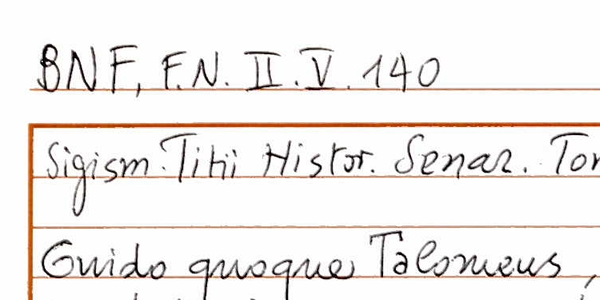 BNF, F.N. II.V. 140
Sigism. Titii Histor. Senar. Tom
Guido quoque Talomeus,